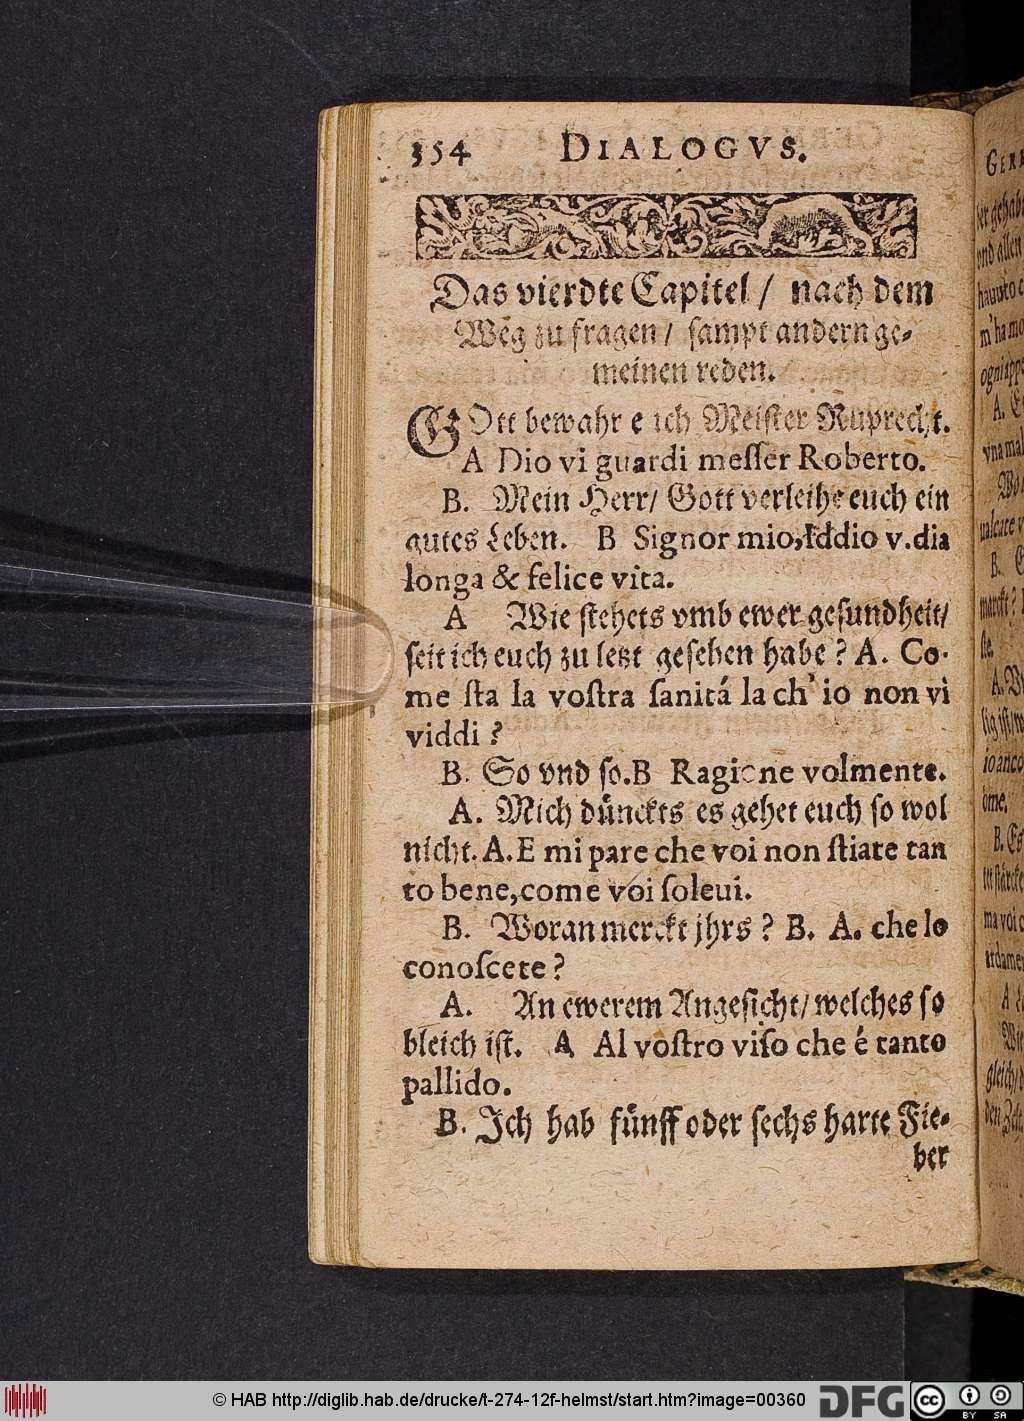 354 DIALOGVS.
Das vierdte Capitel / nach dem
Weg zu fragen / sampt andern ge-
meinen reden.
GOtt bewahr euch Meister Ruprecht.
A Dio vi guardi messer Roberto.
B. Mein Herr/ Gott verleihe euch ein
gutes Leben. B Signor mio, Iddio v. dia
longa & felice vita.
A Wie stehets vmb ewer gesundheit/
seit ich euch zu letzt gesehen habe ? A. Co-
me ſta la voſtra ſanitá la ch' io non vi
viddi ?
B. So vnd so. B Ragione volmente.
A. Mich dünckts es gehet euch so wol
nicht. A. E mi pare che voi non ſtiate tan
to bene, come voi ſoleui.
B. Woran merckt jhrs ? B. A. che lo
conoſcete ?
A. An ewerem Angesicht/ welches so
bleich ist. A Al voſtro viſo che é tanto
pallido.
B. Ich hab fünff oder sechs harte Fie-
ber
© HAB http://diglib.hab.de/drucke/t-274-12f-helmst/start.htm?image=00360
DFG
cc BY SA